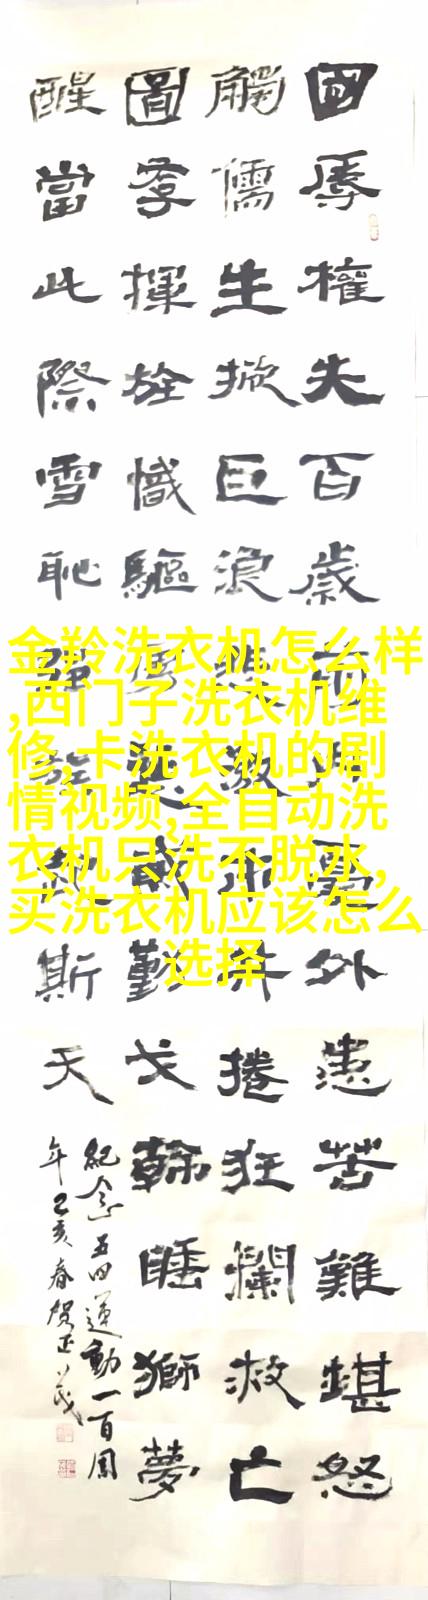 國辱權失百歲前內憂外患苦難堪怒
觸儒生掀巨浪悲激市井捲狂瀾救亡
圖存揮旌幟驅戈韓睡獅夢
醒當此際雪恥強族斯天
紀念五四運動一百周
年己亥春賀正茂
金羚洗衣机怎么样
,西门子洗衣机维
修,卡洗衣机的剧
情视频,全自动洗
衣机只洗不脱水,
买洗衣机应该怎么
选择